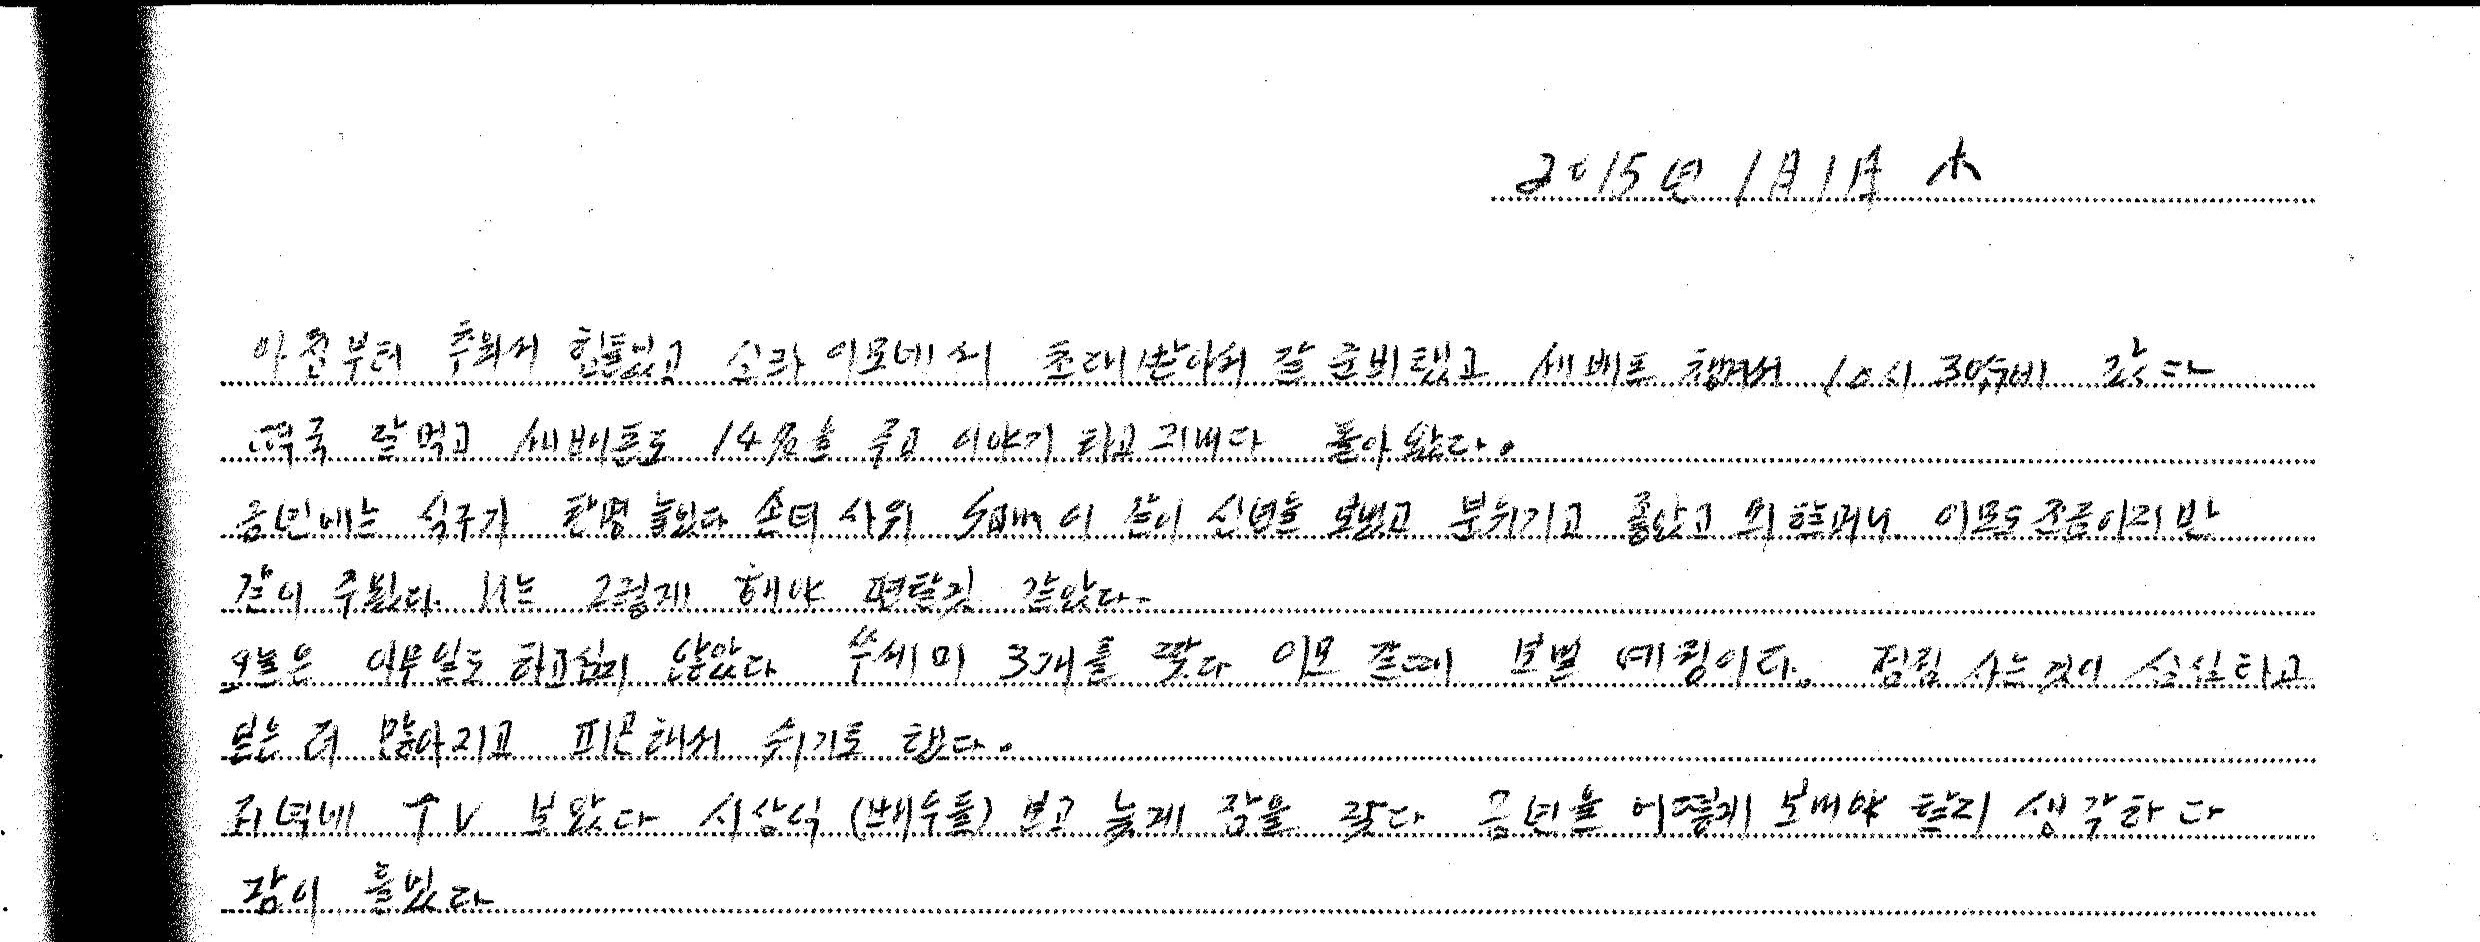 2015년 1月 1日 木
아침부터 추워서 힘들었고 소라 이모네서 초대받아서 잘 준비했고 세배돈 챙겨서 10시 30분에 갔다
떡국 잘먹고 세배돈도 14名을 주고 이야기 하고 지내다 돌아왔다.
금년에는 식구가 한명 늘었다 손녀 사위 같이 신년을 보냈고 분위기고 좋았고 외할머니 이모도 조금이지만
같이 주웠다. 나는 그렇게 해야 편할것 같았다.
오늘은 아무일도 하고싶지 않았다 쑤세미 3개를 짰다 이모 보낼 예정이다. 점점 사는것이 심심하고
보는 더 많아지고 피곤해서 쉬기도 했다.
저녁에 TV 보았다 시상식 (배우들) 보고 늦게 잠을 잤다 금년을 어떻게 보내야 할지 생각하다
잠이 들었다